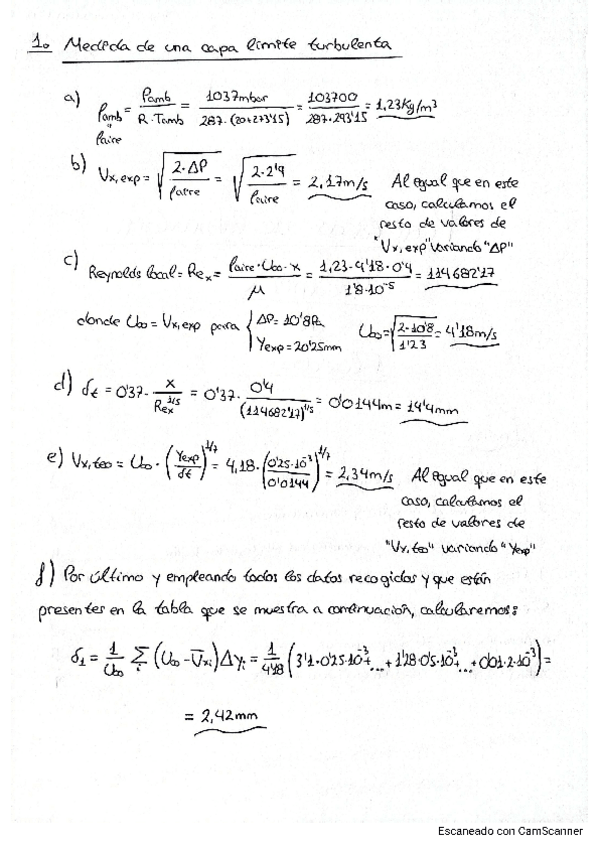 1. Medida de una capa límite turbulenta
a) ρamb = Pamb / R·Tamb = 1037mbar / 287·(20+273'15) = 103700 / 287·293'15 = 1,23Kg/m³
ρamb = ρaire
b) Vx,exp = √(2·ΔP / ρaire) = √(2·2'9 / ρaire) = 2,17m/s Al igual que en este
caso, calculamos el
resto de valores de
"Vx,exp" variando "ΔP"
c) Reynolds local = Rex = ρaire·U∞·x / μ = 1,23·4'18·0'4 / 1'8·10⁻⁵ = 114682'17
donde U∞ = Vx,exp para { ΔP = 10'8Pa U∞ = √(2·10'8 / 1'23) = 4'18m/s
Yexp = 20'25mm
d) δt = 0'37· x / Rex^1/5 = 0'37· 0'4 / (114682'17)^1/5 = 0'0144m = 14'4mm
e) Vx,teo = U∞ · (Yexp / δt)^1/7 = 4,18·(0'25·10⁻³ / 0'0144)^1/7 = 2,34m/s Al igual que en este
caso, calculamos el
resto de valores de
"Vx,teo" variando "Yexp"
f) Por último y empleando todos los datos recogidos y que están
presentes en la tabla que se muestra a continuación, calcularemos:
δ1 = 1/U∞ Σi (U∞ - V̄xi) Δyi = 1/4'18 (3'1·0'25·10⁻³+...+1'28·0'5·10⁻³+...+0'01·2·10⁻³) =
= 2,42mm
Escaneado con CamScanner